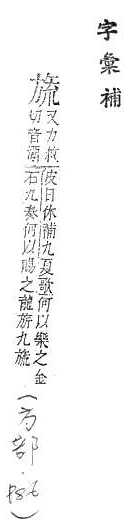 字彙補
旒 又力救
切音溜
皮日休補九夏歌何以樂之金
石九奏何以賜之龍旂九旒
(方部.